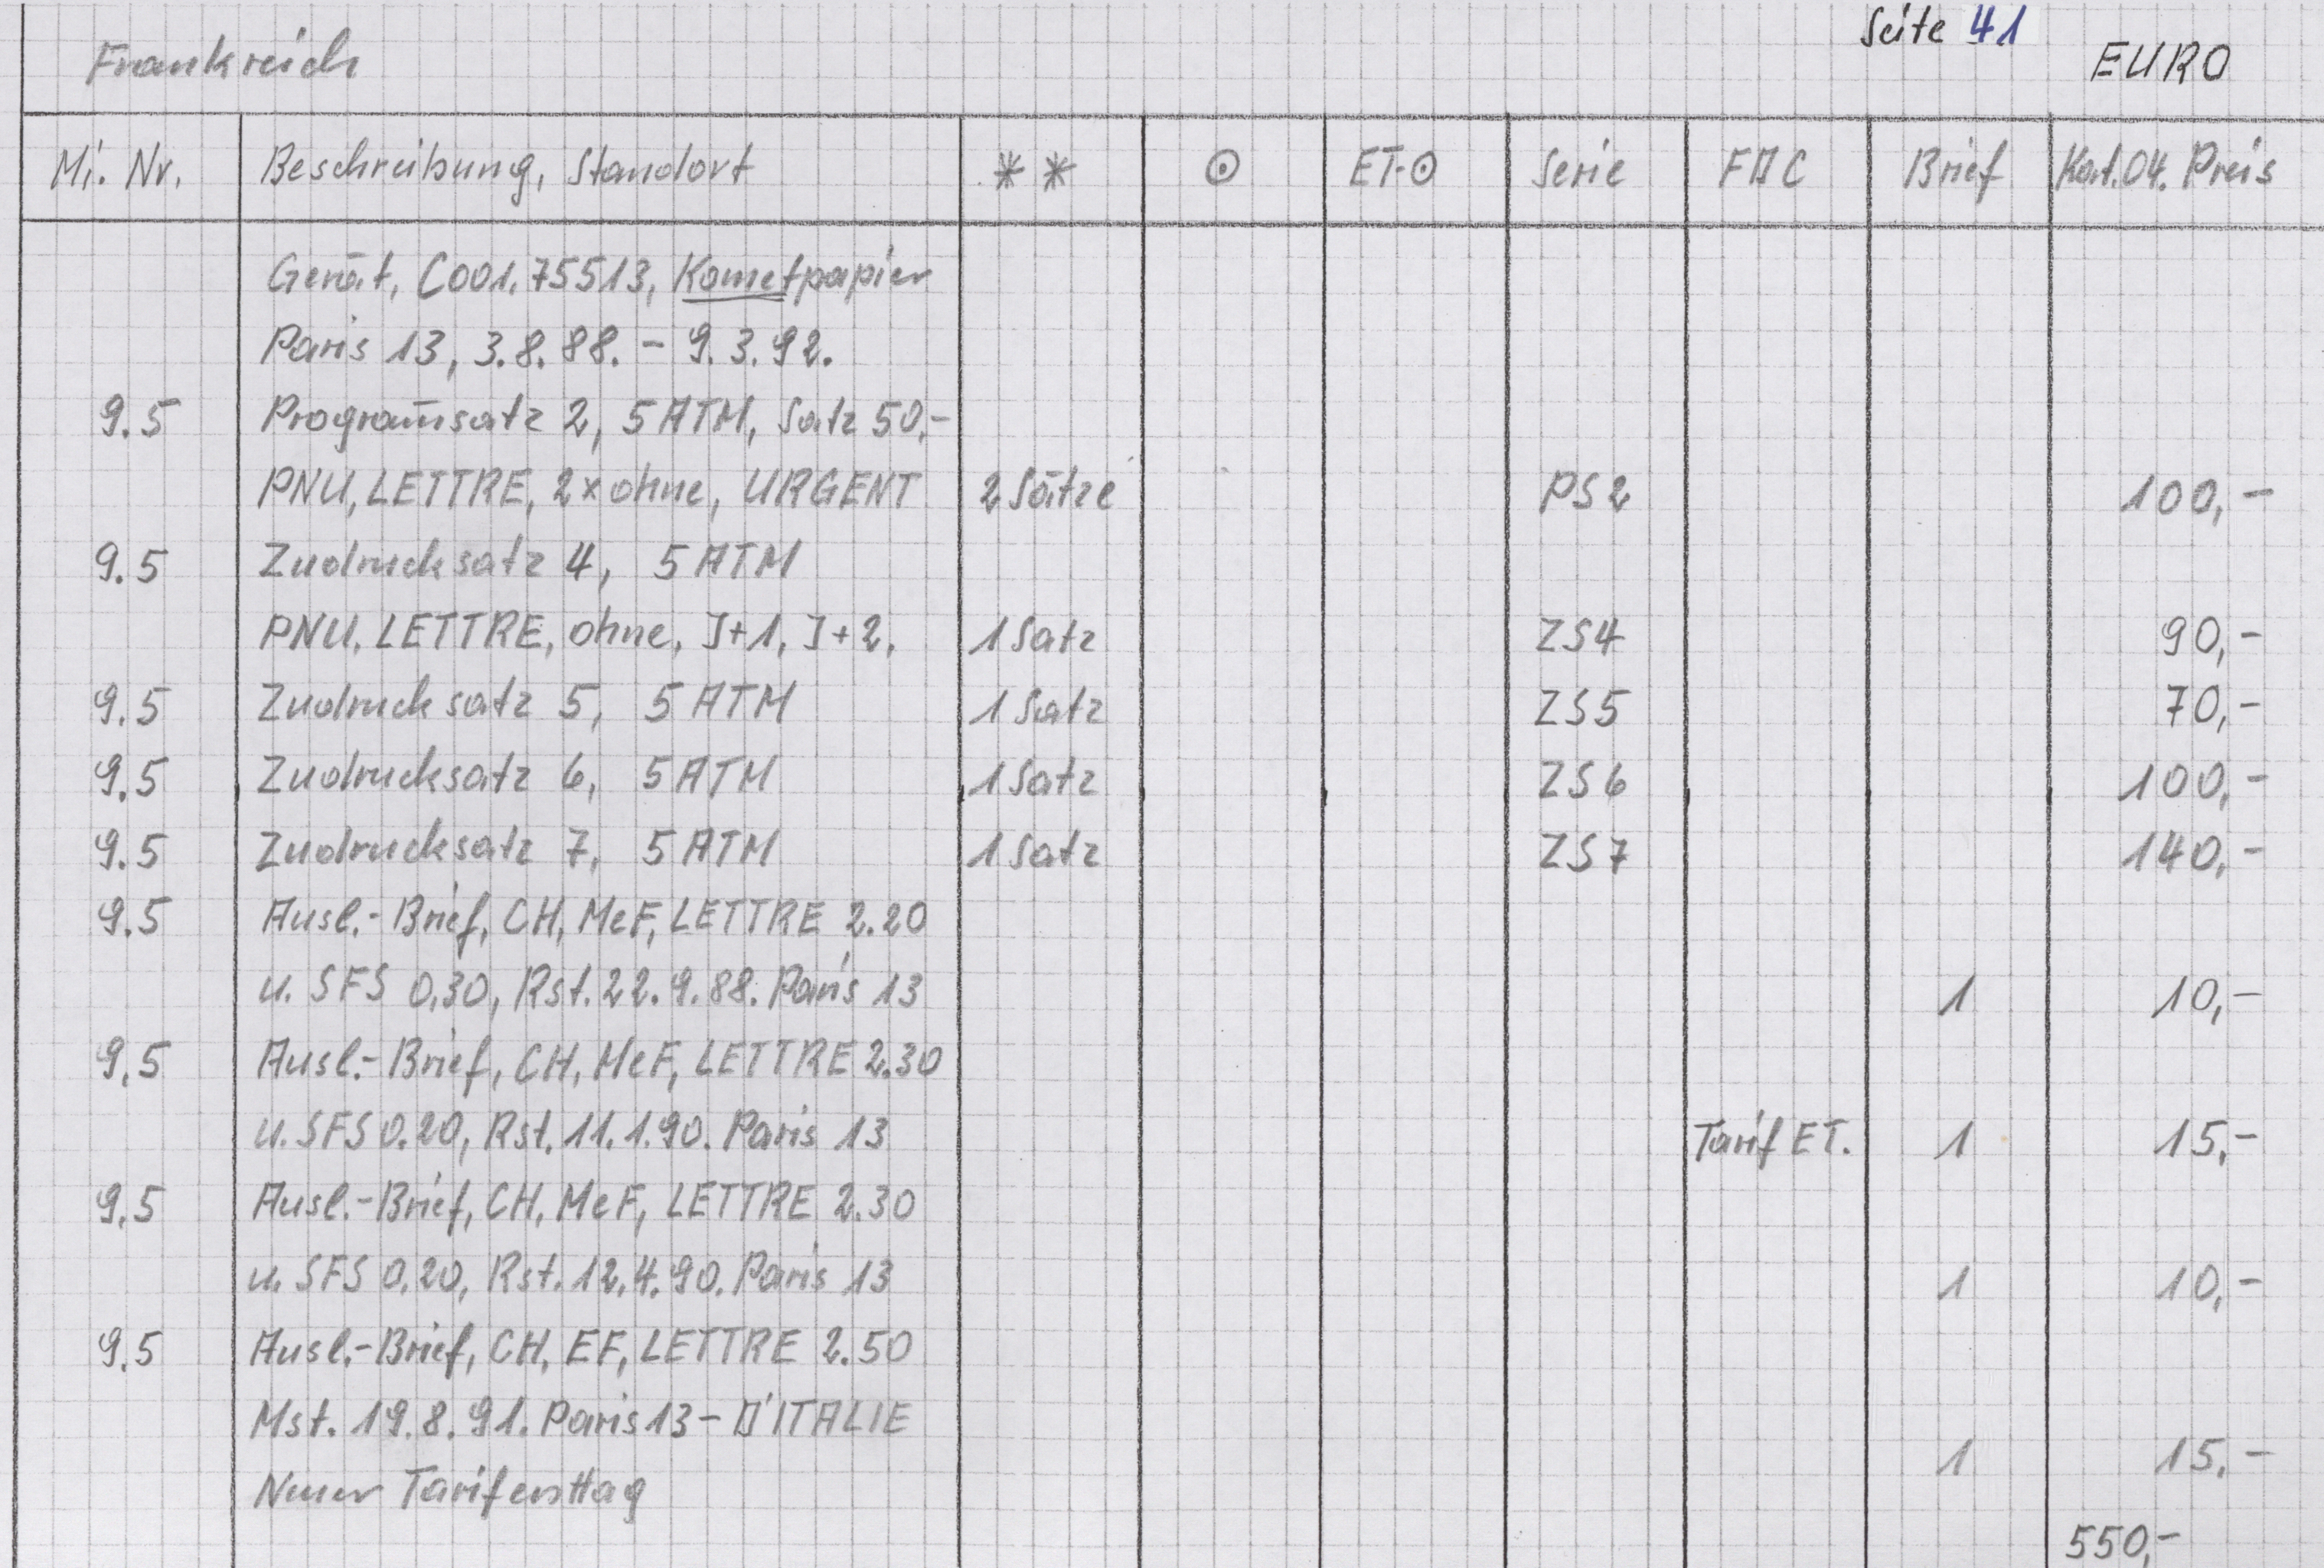 Seite 41
Frankreich EURO
Mi. Nr. Beschreibung, Standort ** ⊙ ET-⊙ Serie FDC Brief Kat.04. Preis
Gerät, C001.75513, Kometpapier
Paris 13, 3.8.88. - 9.3.92.
9.5 Programm̄satz 2, 5 ATM, Satz 50,-
PNU, LETTRE, 2x ohne, URGENT 2 Sätze PS2 100,-
9.5 Zudrucksatz 4, 5 ATM
PNU, LETTRE, ohne, J+1, J+2, 1 Satz ZS4 90,-
9.5 Zudrucksatz 5, 5 ATM 1 Satz ZS5 70,-
9.5 Zudrucksatz 6, 5 ATM 1 Satz ZS6 100,-
9.5 Zudrucksatz 7, 5 ATM 1 Satz ZS7 140,-
9.5 Ausl.-Brief, CH, MeF, LETTRE 2.20
u. SFS 0.30, Rst. 22.9.88. Paris 13 1 10,-
9.5 Ausl.-Brief, CH, MeF, LETTRE 2.30
u. SFS 0.20, Rst. 11.1.90. Paris 13 Tarif ET. 1 15,-
9.5 Ausl.-Brief, CH, MeF, LETTRE 2.30
u. SFS 0.20, Rst. 12.4.90. Paris 13 1 10,-
9.5 Ausl.-Brief, CH, EF, LETTRE 2.50
Mst. 19.8.91. Paris 13 - D'ITALIE
1 15,-
Neuer Tarifersttag
550,-